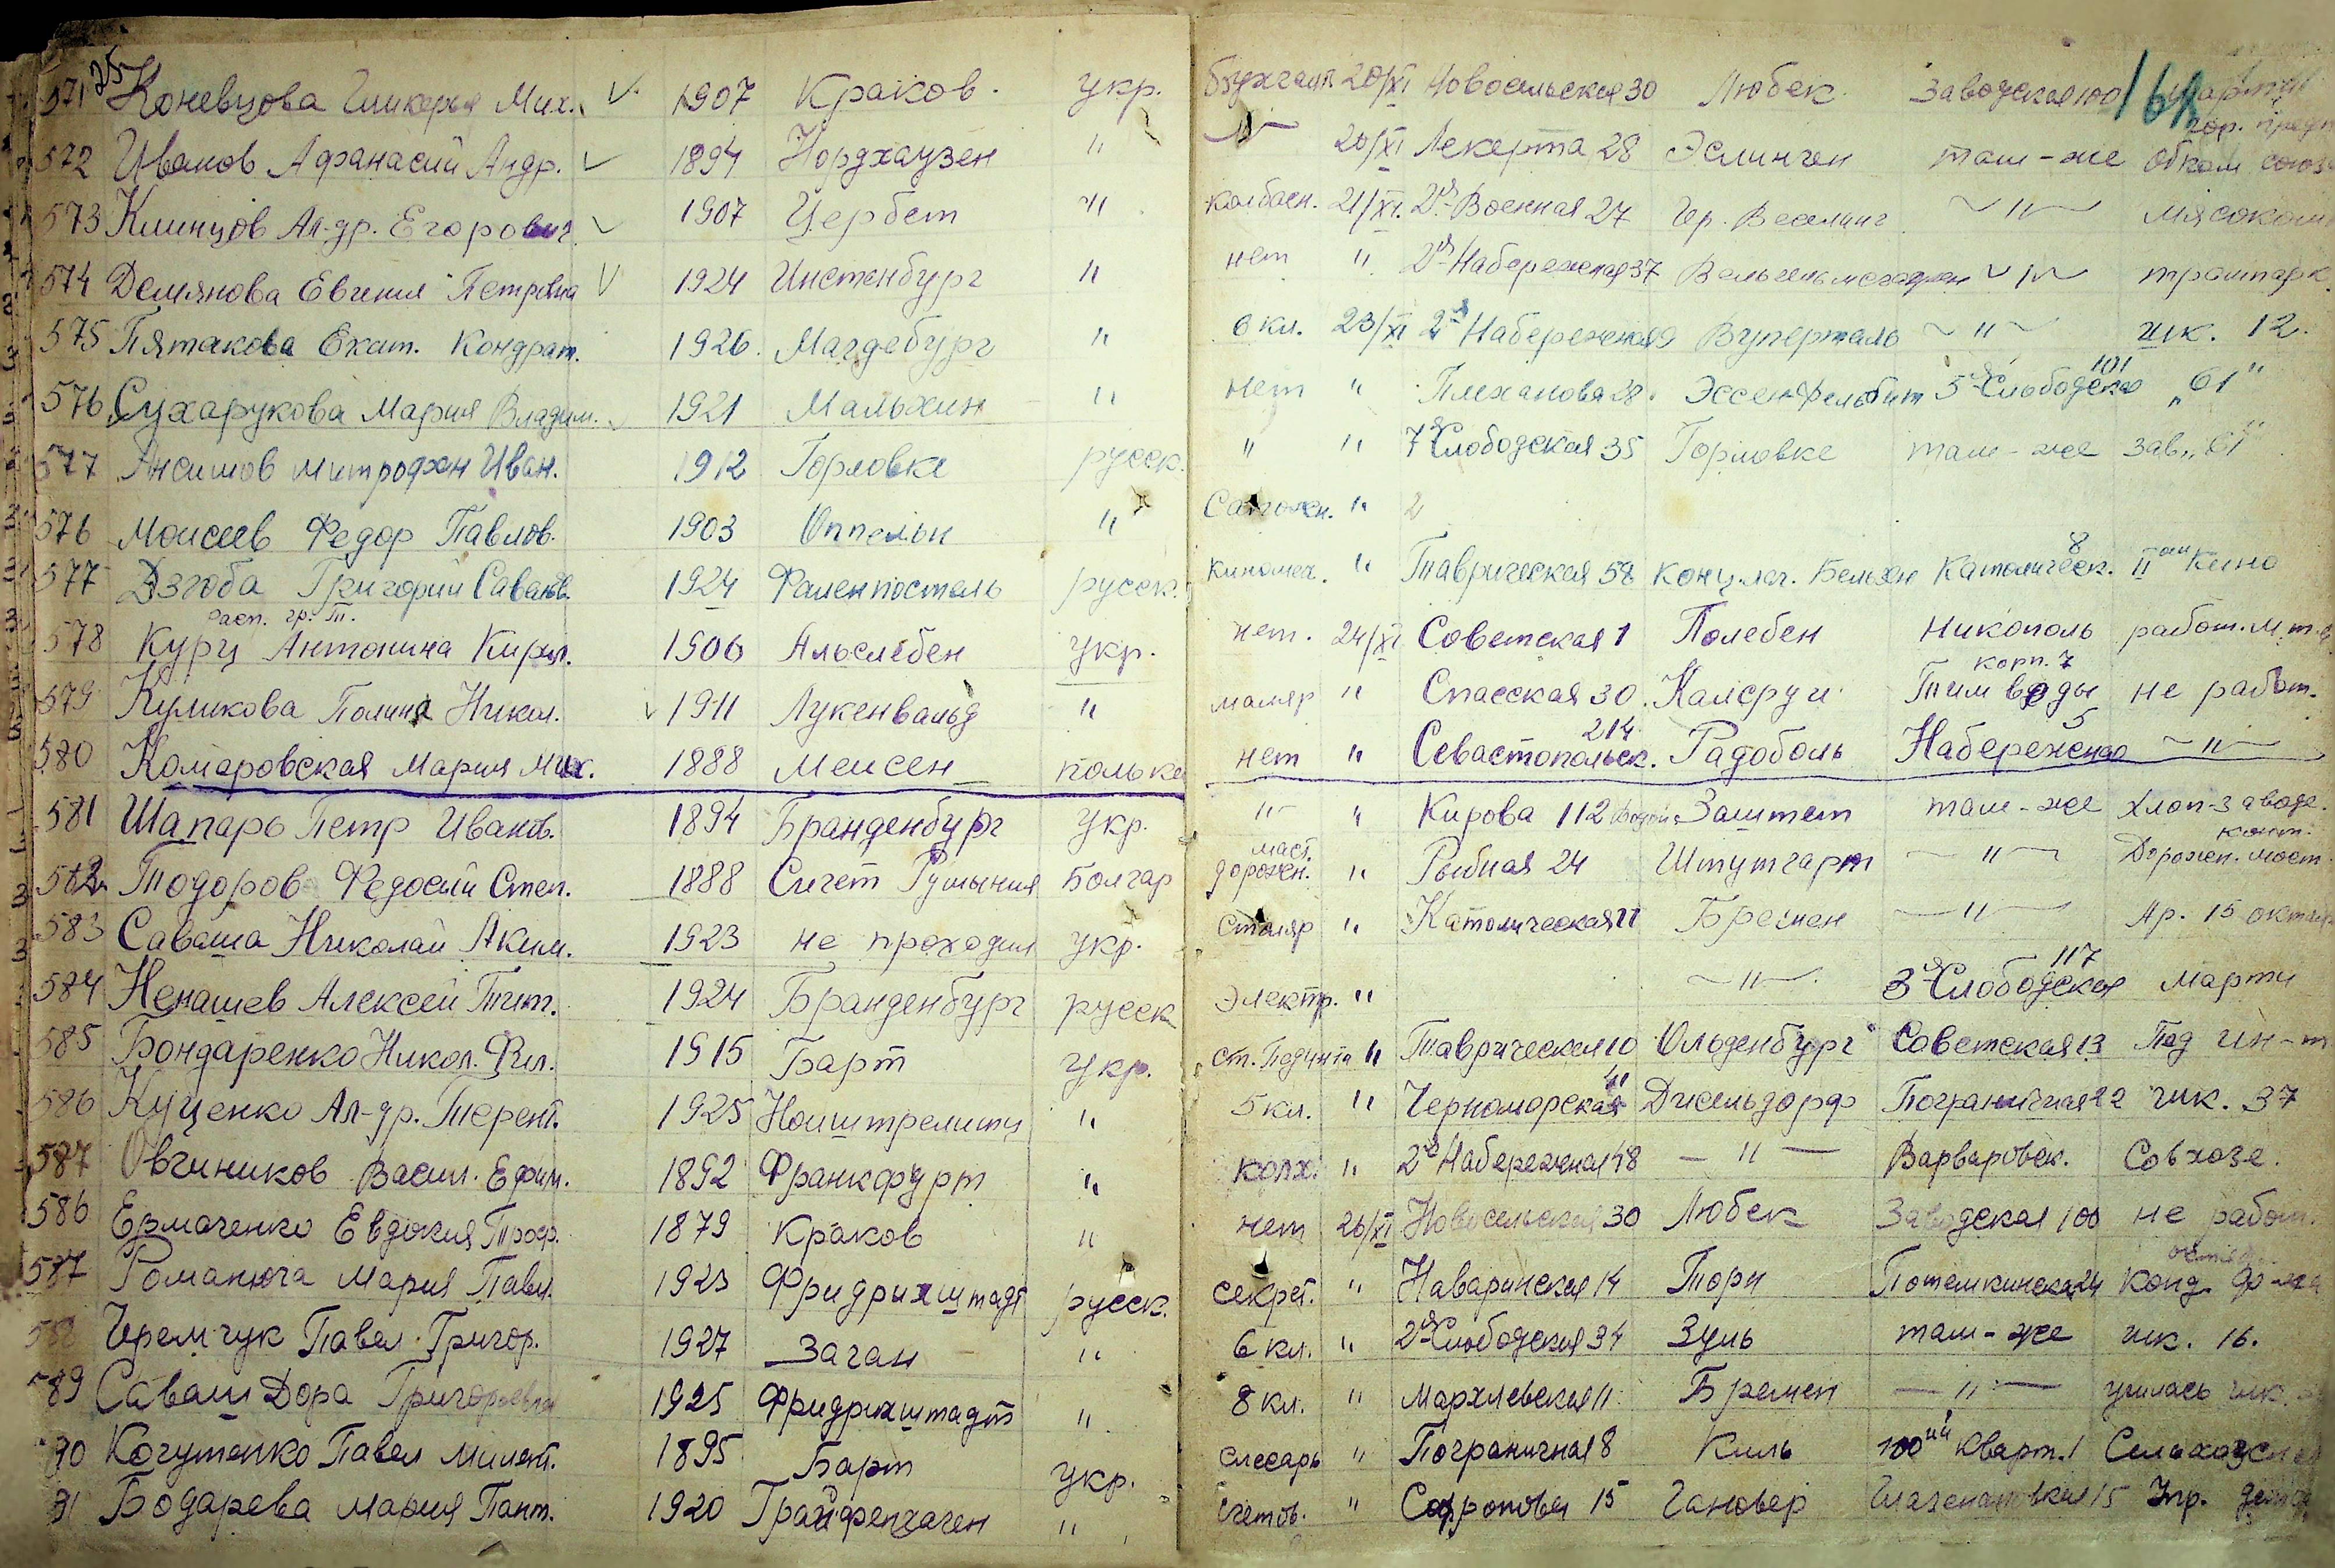 571 Коневцова Гликерья Мих. ✓ 1907 Краков. укр. бухгалт. 20/XI Новосельская 30 Любек Заводская 100
572 Иванов Афанасий Андр. ✓ 1894 Нордхаузен " 20/XI Лекерта 28 Эслинген там-же Обком союз
573 Клинцов Ал-др. Егорович ✓ 1907 Цербст " колбасн. 21/XI. 2я Военная 27 Гр. Веслинг " Мясоком
574 Демянова Евгения Петровна ✓ 1924 Инстенбург " нет " 2я Набережная 37 " трампарк.
575 Пятакова Екат. Кондрат. 1926. Магдебург " 6 кл. 23/XI 2я Набережная 9 Вуперталь " шк. 12.
576 Сухарукова Мария Владим. 1921 Мальхин " нет " Плеханова 28. Эссен 5я Слободская 101 „61"
577 Ансимов Митрофан Иван. 1912 Горловка русск. " " 7я Слободская 35 Горловке там-же зав. „61"
576 Моисеев Федор Павлов. 1903 Оппельн " Сапожн. " 2
577 Дзюба Григорий Савел. 1924 Фаленпосталь русск. киномех. " Таврическая 58 Конц.лаг. Бельзен Католическ. 8 II ой Кино
расп. гр. III.
578 Курц Антонина Кирил. 1906 Альслебен укр. нет. 24/XI Советская 1 Полебен Никополь работ. м.т.ф
579 Куликова Полина Никол. ✓ 1911 Лукенвальд " маляр " Спасская 30. Калсруи Тимводы корп. 7 не работ.
580 Комаровская Мария Мих. 1888 Мейсен полька нет " Севастопольск. 214 Радоболь Набережная 5 "
581 Шапарь Петр Иванов. 1894 Бранденбург укр. " " Кирова 112 Заштет там-же Хлоп-заводе.
582 Тодоров Федосий Степ. 1888 Сигет Румыния Болгар маст. дорожн. " Рыбная 24 Штутгарт " Дорожн. мост. конт.
583 Саваша Николай Аким. 1923 не проходил укр. столяр " Католическая 11 Бремен " Ар. 15 октяб
584 Ненашев Алексей Тит. 1924 Бранденбург русск электр. " " 3я Слободская 117 Марти
585 Бондаренко Никол. Фил. 1915 Барт укр. ст. Пединта " Таврическая 10 Ольденбург Советская 13 Пед ин-т
586 Куценко Ал-др. Терент. 1925 Ноиштрелитц " 5 кл. " Черноморская 41 Дисельдорф Пограничная 22 шк. 37
587 Овчиников Васил. Ефим. 1892 Франкфурт " колх. " 2я Набережная 48 " Варваровск. Совхозе.
586 Ермаченко Евдокия Троф. 1879 Краков " нет 26/XI Новосельская 30 Любек Заводская 100 не работ.
587 Романюга Мария Павл. 1923 Фридрихштадт русск. секрет. " Наваринская 14 Торн Потемкинская 24 Конд. ф-ка
588 Черемчук Павел Григор. 1927 Заган " 6 кл. " 2я Слободская 34 Зуль там-же шк. 16.
589 Саваш Дора Григорьевна 1925 Фридрихштадт " 8 кл. " Мархлевская 11 Бремен " училась шк.
90 Когутенко Павел Милент. 1895 Барт укр. слесарь " Пограничная 8 Киль 100ый Кварт. 1
91 Бодарева Мария Пант. 1920 Грайфенгаген " счетов. " Сафронова 15 Гановер 15 Упр.